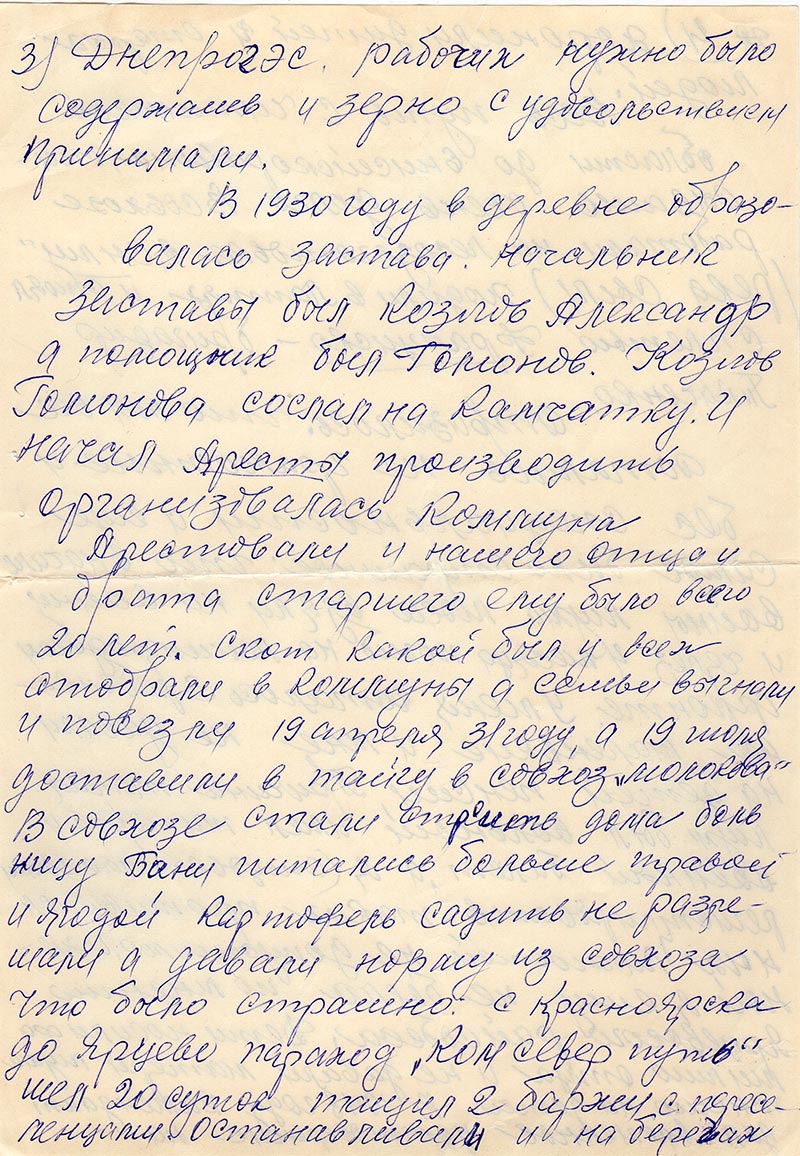 3) Днепрогэс. рабочих нужно было
содержать и зерно с удовольствием
принимали.
В 1930 году в деревне образо-
валась Застава. Начальник
Заставы был Козлов Александр
а помощник был Гомонов. Козлов
Гомонова сослал на Камчатку. И
начал Аресты производить
организовалась Коммуна
Арестовали и нашего отца и
брата старшего ему было всего
20 лет. Скот какой был у всех
отобрали в коммуны а семьи выгнали
и повезли 19 апреля 31 году, а 19 июля
доставили в тайгу в совхоз „Молокова“
В совхозе стали строить дома боль
ницу Бани питались больше травой
и ягодой картофель садить не разре-
шали а давали норму из совхоза
Что было страшно: с Красноярска
до Ярцево параход „Комсевер путь“
шел 20 суток тащил 2 баржи с пересе-
ленцами. Останавливали и на берегах